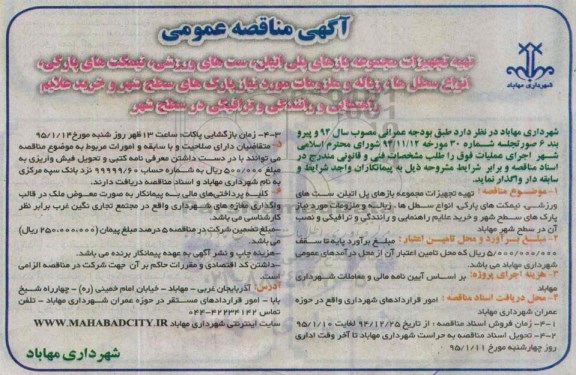 آگهی مناقصه عمومی
تهیه تجهیزات مجموعه بازهای پلی اتیلن، ست های ورزشی، نیمکت های پارکی،
انواع سطل ها، زباله و ملزومات مورد نیاز پارک های سطح شهر و خرید علایم
راهنمایی و رانندگی و ترافیکی در سطح شهر
شهرداری مهاباد
شهرداری مهاباد در نظر دارد طبق بودجه عمرانی مصوب سال ۹۴ و پیرو
بند ۶ صورتجلسه شماره ۳۰ مورخه ۹۴/۱۱/۱۲ شورای محترم اسلامی
شهر اجرای عملیات فوق را طلب مشخصات فنی و قانونی مندرج در
اسناد مناقصه و برابر شرایط مشروحه ذیل به پیمانکاران واجد شرایط و
سابقه دار واگذار نماید.
۱-موضوع مناقصه : تهیه تجهیزات مجموعه بازهای پل اتیلن، ست های
ورزشی، نیمکت های پارکی، انواع سطل ها ، زباله و ملزومات مورد نیاز
پارک های سطح شهر و خرید علایم راهنمایی و رانندگی و ترافیکی و نصب
آن در سطح شهر مهاباد
۲-مبلغ برآورد و محل تامین اعتبار : مبلغ برآورد پایه تا سقف
۵/۰۰۰/۰۰۰/۰۰۰ ریال که محل تامین اعتبار آن از محل درآمدهای عمومی
شهرداری مهاباد می باشد.
۳- هزینه اجرای پروژه: بر اساس آیین نامه مالی و معاملات شهرداری
مهاباد
۴- محل دریافت اسناد مناقصه : امور قراردادهای شهرداری واقع در حوزه
عمران شهرداری مهاباد
۴-۱- زمان فروش اسناد مناقصه : از تاریخ ۹۴/۱۲/۲۵ لغایت ۹۵/۱/۱۰
۴-۲- تحویل اسناد مناقصه به حراست شهرداری مهاباد تا آخر وقت اداری
روز چهارشنبه مورخ ۹۵/۱/۱۱
۴-۳- زمان بازگشایی پاکات: ساعت ۱۳ ظهر روز شنبه مورخ ۹۵/۱/۱۴
۵- متقاضیان دارای صلاحیت و با سابقه و امورات مربوط به موضوع مناقصه
می توانند با در دست داشتن معرفی نامه کتبی و تحویل فیش واریزی به
مبلغ ۵۰۰/۰۰۰ ریال به شماره حساب ۹۹۹۹۹/۶۰ نزد بانک سپه مرکزی
به نام شهرداری مهاباد و اسناد مناقصه دریافت دارند.
۶- کلیه پرداختهای مالی به پیمانکار به صورت معوض ملک در قالب
واگذاری مغازه های شهرداری واقع در مجتمع تجاری نگین غرب برابر نظر
کارشناسی می باشد.
-مبلغ تضمین شرکت در مناقصه ۵ درصد مبلغ پیمان (۲۵۰,۰۰۰,۰۰۰ ریال)
می باشد.
-هزینه چاپ و نشر آگهی به عهده پیمانکار برنده می باشد.
-داشتن کد اقتصادی و مقررات حاکم بر آن جهت شرکت در مناقصه الزامی
است.
آدرس: آذربایجان غربی - مهاباد - خیابان امام خمینی (ره) - چهارراه شیخ
بابا - امور قراردادهای مستقر در حوزه عمران شهرداری مهاباد - تلفن
تماس ۴۲۲۳۴۱۴۲-۰۴۴
سایت اینترنتی شهرداری مهاباد WWW.MAHABADCITY.IR
شهرداری مهاباد